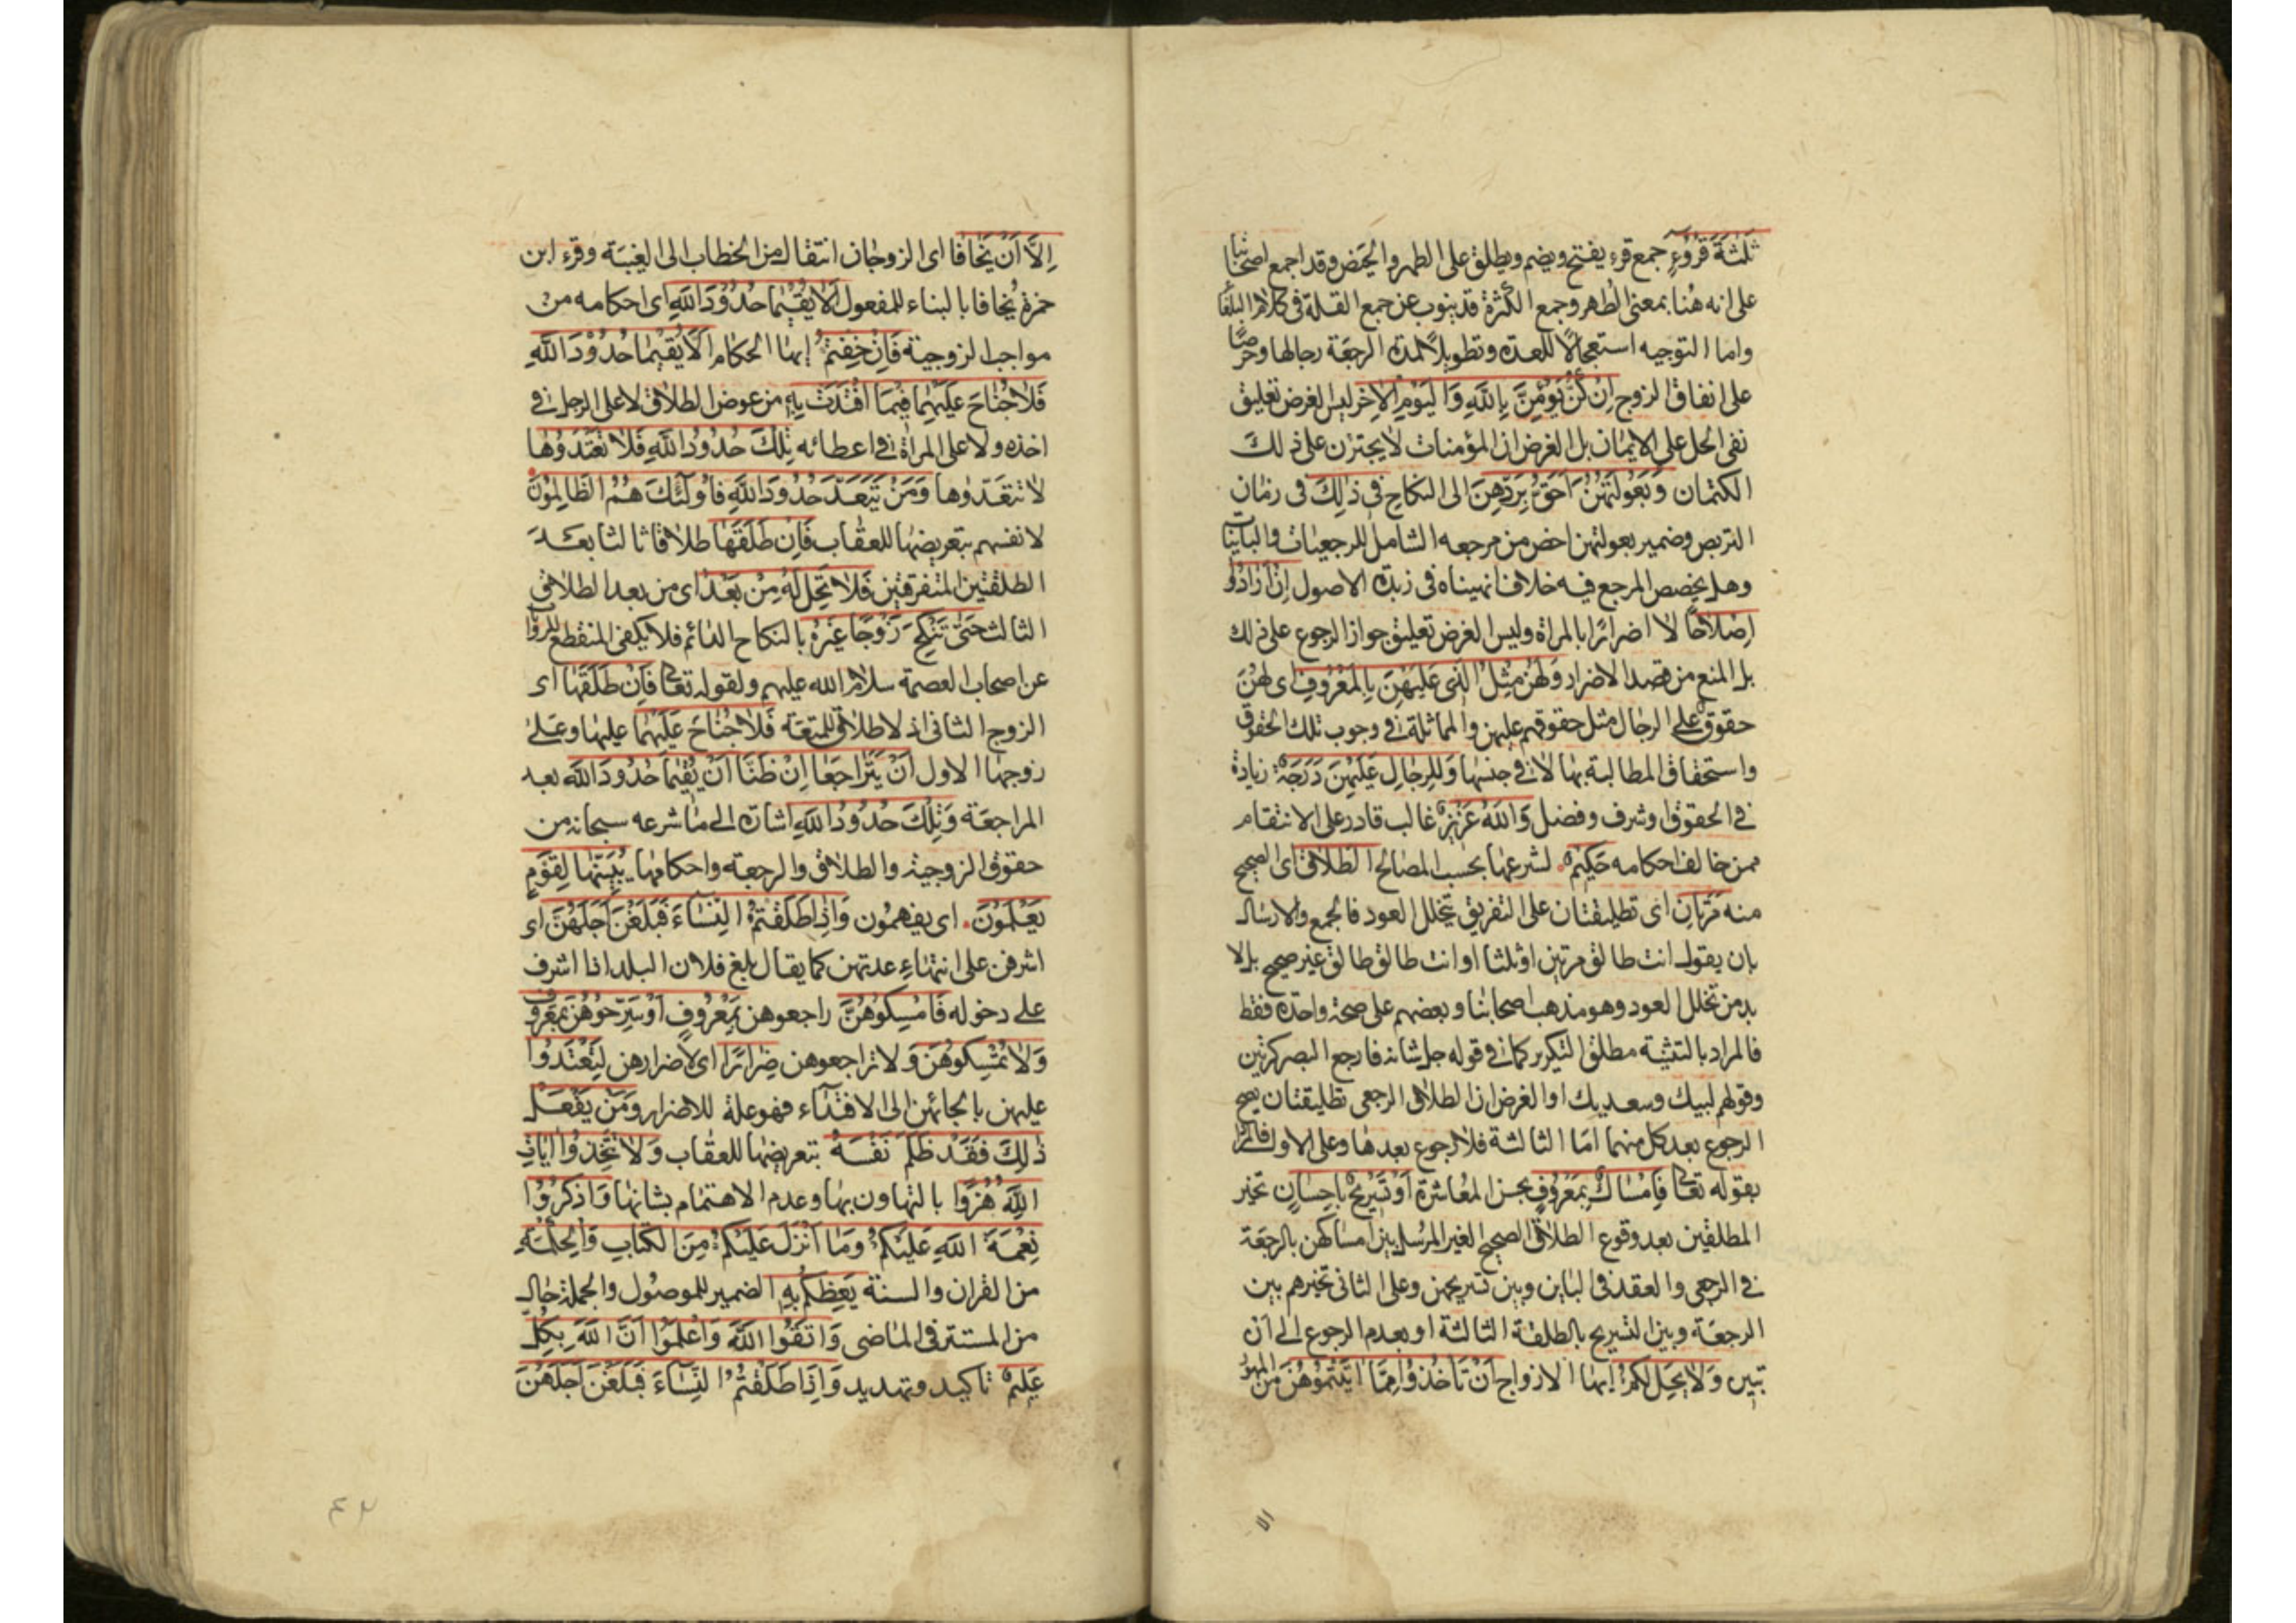 ثَلٰثَةَ قُرُوٓءٍ جمع قرء يفتح ويضم ويطلق على الطهر والحيض وقد اجمع اصحابنا
على انه هُنا بمعنى الطهر وجمع الكثرة قد ينوب عن جمع القلة فى كلام البلغا
واما التوجيه استعجالًا للعدة وتطويلًا لمدة الرجعة رجالها وحرصًا
على انفاق الزوج اِنْ كُنَّ يُؤْمِنَّ بِاللّٰهِ وَالْيَوْمِ الْاٰخِرِ ليس الغرض تعليق
نفى الحل على الايمان بل الغرض ان المؤمنات لا يجترن على ذلك
الكتمان وَبُعُولَتُهُنَّ اَحَقُّ بِرَدِّهِنَّ الى النكاح فِى ذٰلِكَ فى زمان
التربص وضمير بعولتهن اخص من مرجعه الشامل للرجعيات والباينات
وهل يخصص المرجع فيه خلاف انهيناه فى زبدة الاصول اِنْ اَرَادُوا
اِصْلَاحًا لا اضرارًا بالمراة وليس الغرض تعليق جواز الرجوع على ذلك
بل المنع من قصد الاضرار وَلَهُنَّ مِثْلُ الَّذِى عَلَيْهِنَّ بِالْمَعْرُوفِ اى لهن
حقوق على الرجال مثل حقوقهم عليهن والمماثلة فى وجوب تلك الحقوق
واستحقاق المطالبة بها لا فى جنسها وَلِلرِّجَالِ عَلَيْهِنَّ دَرَجَةٌ زيادة
فى الحقوق او شرف وفضل وَاللّٰهُ عَزِيزٌ غالب قادر على الانتقام
ممن خالف احكامه حَكِيمٌ لشرعها بحسب المصالح الطَّلَاقُ اى الصحيح
منه مَرَّتَانِ اى تطليقتان على التفريق بتخلل العود فالجمع والارسال
بان يقول انت طالق مرتين او ثلثا او انت طالق طالق غير صحيح بل لا
بد من تخلل العود وهو مذهب اصحابنا وبعضهم على صحة واحدة فقط
فالمراد بالتثنية مطلق التكرير كما فى قوله جل شانه فارجع البصر كرتين
وقولهم لبيك وسعديك او الغرض ان الطلاق الرجعى تطليقتان يصح
الرجوع بعد كل منهما اما الثالثة فلا رجوع بعدها وعلى الاول فالمراد
بقوله تعالى فَاِمْسَاكٌ بِمَعْرُوفٍ بحسن المعاشرة اَوْ تَسْرِيحٌ بِاِحْسَانٍ تخير
المطلقين بعد وقوع الطلاق الصحيح الغير المرسل بين امساكهن بالرجعة
فى الرجعى والعقد فى الباين وبين تسريحهن وعلى الثانى تخيرهم بين
الرجعة وبين التسريح بالطلقة الثالثة او بعدم الرجوع الى ان
تبين وَلَا يَحِلُّ لَكُمْ ايها الازواج اَنْ تَأْخُذُوا مِمَّا اٰتَيْتُمُوهُنَّ من المهور
الا
اِلَّا اَنْ يَخَافَا اى الزوجان انتقال من الخطاب الى الغيبة وقرء ابن
حمزة يُخافا بالبناء للمفعول اَلَّا يُقِيمَا حُدُودَ اللّٰهِ اى احكامه من
مواجب الزوجية فَاِنْ خِفْتُمْ ايها الحكام اَلَّا يُقِيمَا حُدُودَ اللّٰهِ
فَلَا جُنَاحَ عَلَيْهِمَا فِيمَا افْتَدَتْ بِهِ من عوض الطلاق لا على الرجل فى
اخذه ولا على المراة فى اعطائه تِلْكَ حُدُودُ اللّٰهِ فَلَا تَعْتَدُوهَا
لا تتعدّوها وَمَنْ يَتَعَدَّ حُدُودَ اللّٰهِ فَاُولٰئِكَ هُمُ الظَّالِمُونَ
لانفسهم بتعريضها للعقاب فَاِنْ طَلَّقَهَا طلاقا ثالثا بعد
الطلقتين المتفرقتين فَلَا تَحِلُّ لَهُ مِنْ بَعْدُ اى من بعد الطلاق
الثالث حَتّٰى تَنْكِحَ زَوْجًا غَيْرَهُ بالنكاح الدائم فلا يكفى المنقطع للرواية
عن اصحاب العصمة سلام الله عليهم ولقوله تعالى فَاِنْ طَلَّقَهَا اى
الزوج الثانى اذ لا طلاق للمتعة فَلَا جُنَاحَ عَلَيْهِمَا عليها وعلى
زوجها الاول اَنْ يَتَرَاجَعَا اِنْ ظَنَّا اَنْ يُقِيمَا حُدُودَ اللّٰهِ بعد
المراجعة وَتِلْكَ حُدُودُ اللّٰهِ اشارة الى ما شرعه سبحانه من
حقوق الزوجية والطلاق والرجعة واحكامها يُبَيِّنُهَا لِقَوْمٍ
يَعْلَمُونَ اى يفهمون وَاِذَا طَلَّقْتُمُ النِّسَاءَ فَبَلَغْنَ اَجَلَهُنَّ اى
اشرفن على انتهاء عدتهن كما يقال بلغ فلان البلد اذا اشرف
على دخوله فَاَمْسِكُوهُنَّ راجعوهن بِمَعْرُوفٍ اَوْ سَرِّحُوهُنَّ بِمَعْرُوفٍ
وَلَا تُمْسِكُوهُنَّ ولا تراجعوهن ضِرَارًا اى لاضرارهن لِتَعْتَدُوا
عليهن بالجائهن الى الافتداء فهو علة للاضرار وَمَنْ يَفْعَلْ
ذٰلِكَ فَقَدْ ظَلَمَ نَفْسَهُ بتعريضها للعقاب وَلَا تَتَّخِذُوا اٰيَاتِ
اللّٰهِ هُزُوًا بالتهاون بها وعدم الاهتمام بشانها وَاذْكُرُوا
نِعْمَةَ اللّٰهِ عَلَيْكُمْ وَمَا اَنْزَلَ عَلَيْكُمْ مِنَ الْكِتَابِ وَالْحِكْمَةِ
من القران والسنة يَعِظُكُمْ بِهِ الضمير للموصول والجملة حال
من المستتر فى الماضى وَاتَّقُوا اللّٰهَ وَاعْلَمُوا اَنَّ اللّٰهَ بِكُلِّ
عَلِيمٌ تاكيد وتهديد وَاِذَا طَلَّقْتُمُ النِّسَاءَ فَبَلَغْنَ اَجَلَهُنَّ